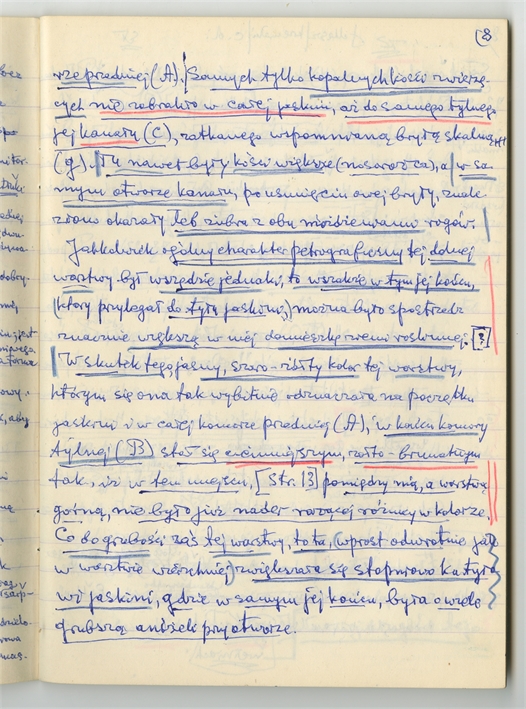 8
rze przedniej (A). Samych tylko kopalnych kości zwierzę-
cych nie zabrakło w całej jaskini, aż do samego tylnego
jej kanału (C), zatkanego wspomnianą bryłą skalną
(g). Tu nawet były kości większe (nosorożca), a w sa-
mym otworze kanału, po usunięciu owej bryły, znale
ziono okazały łeb żubra z obu możdżeniami rogów.
Jakkolwiek ogólny charakter petrograficzny tej dolnej
warstwy był wszędzie jednaki, to wszakże w tym jej końcu,
(który przylegał do tyłu jaskini,) można było spostrzedz
znacznie większą w niej domieszkę ziemi roślinnej. [?]
W skutek tego jasny, szaro-żółty kolor tej warstwy,
którym się ona tak wybitnie odznaczała na początku
jaskini i w całej komorze przedniej (A), w końcu komory
tylnej (B) stał się ciemniejszym, żółto-brunatnym
tak, iż w tem miejscu, [Str. 13] pomiędzy nią, a warstwą
górną, nie było już nader rażącej różnicy w kolorze.
Co do grubości zaś tej warstwy, to ta, (wprost odwrotnie jak
w warstwie wierzchniej) zwiększała się stopniowo ku tyło
wi jaskini, gdzie w samym jej końcu, była o wiele
grubszą aniżeli przy otworze.